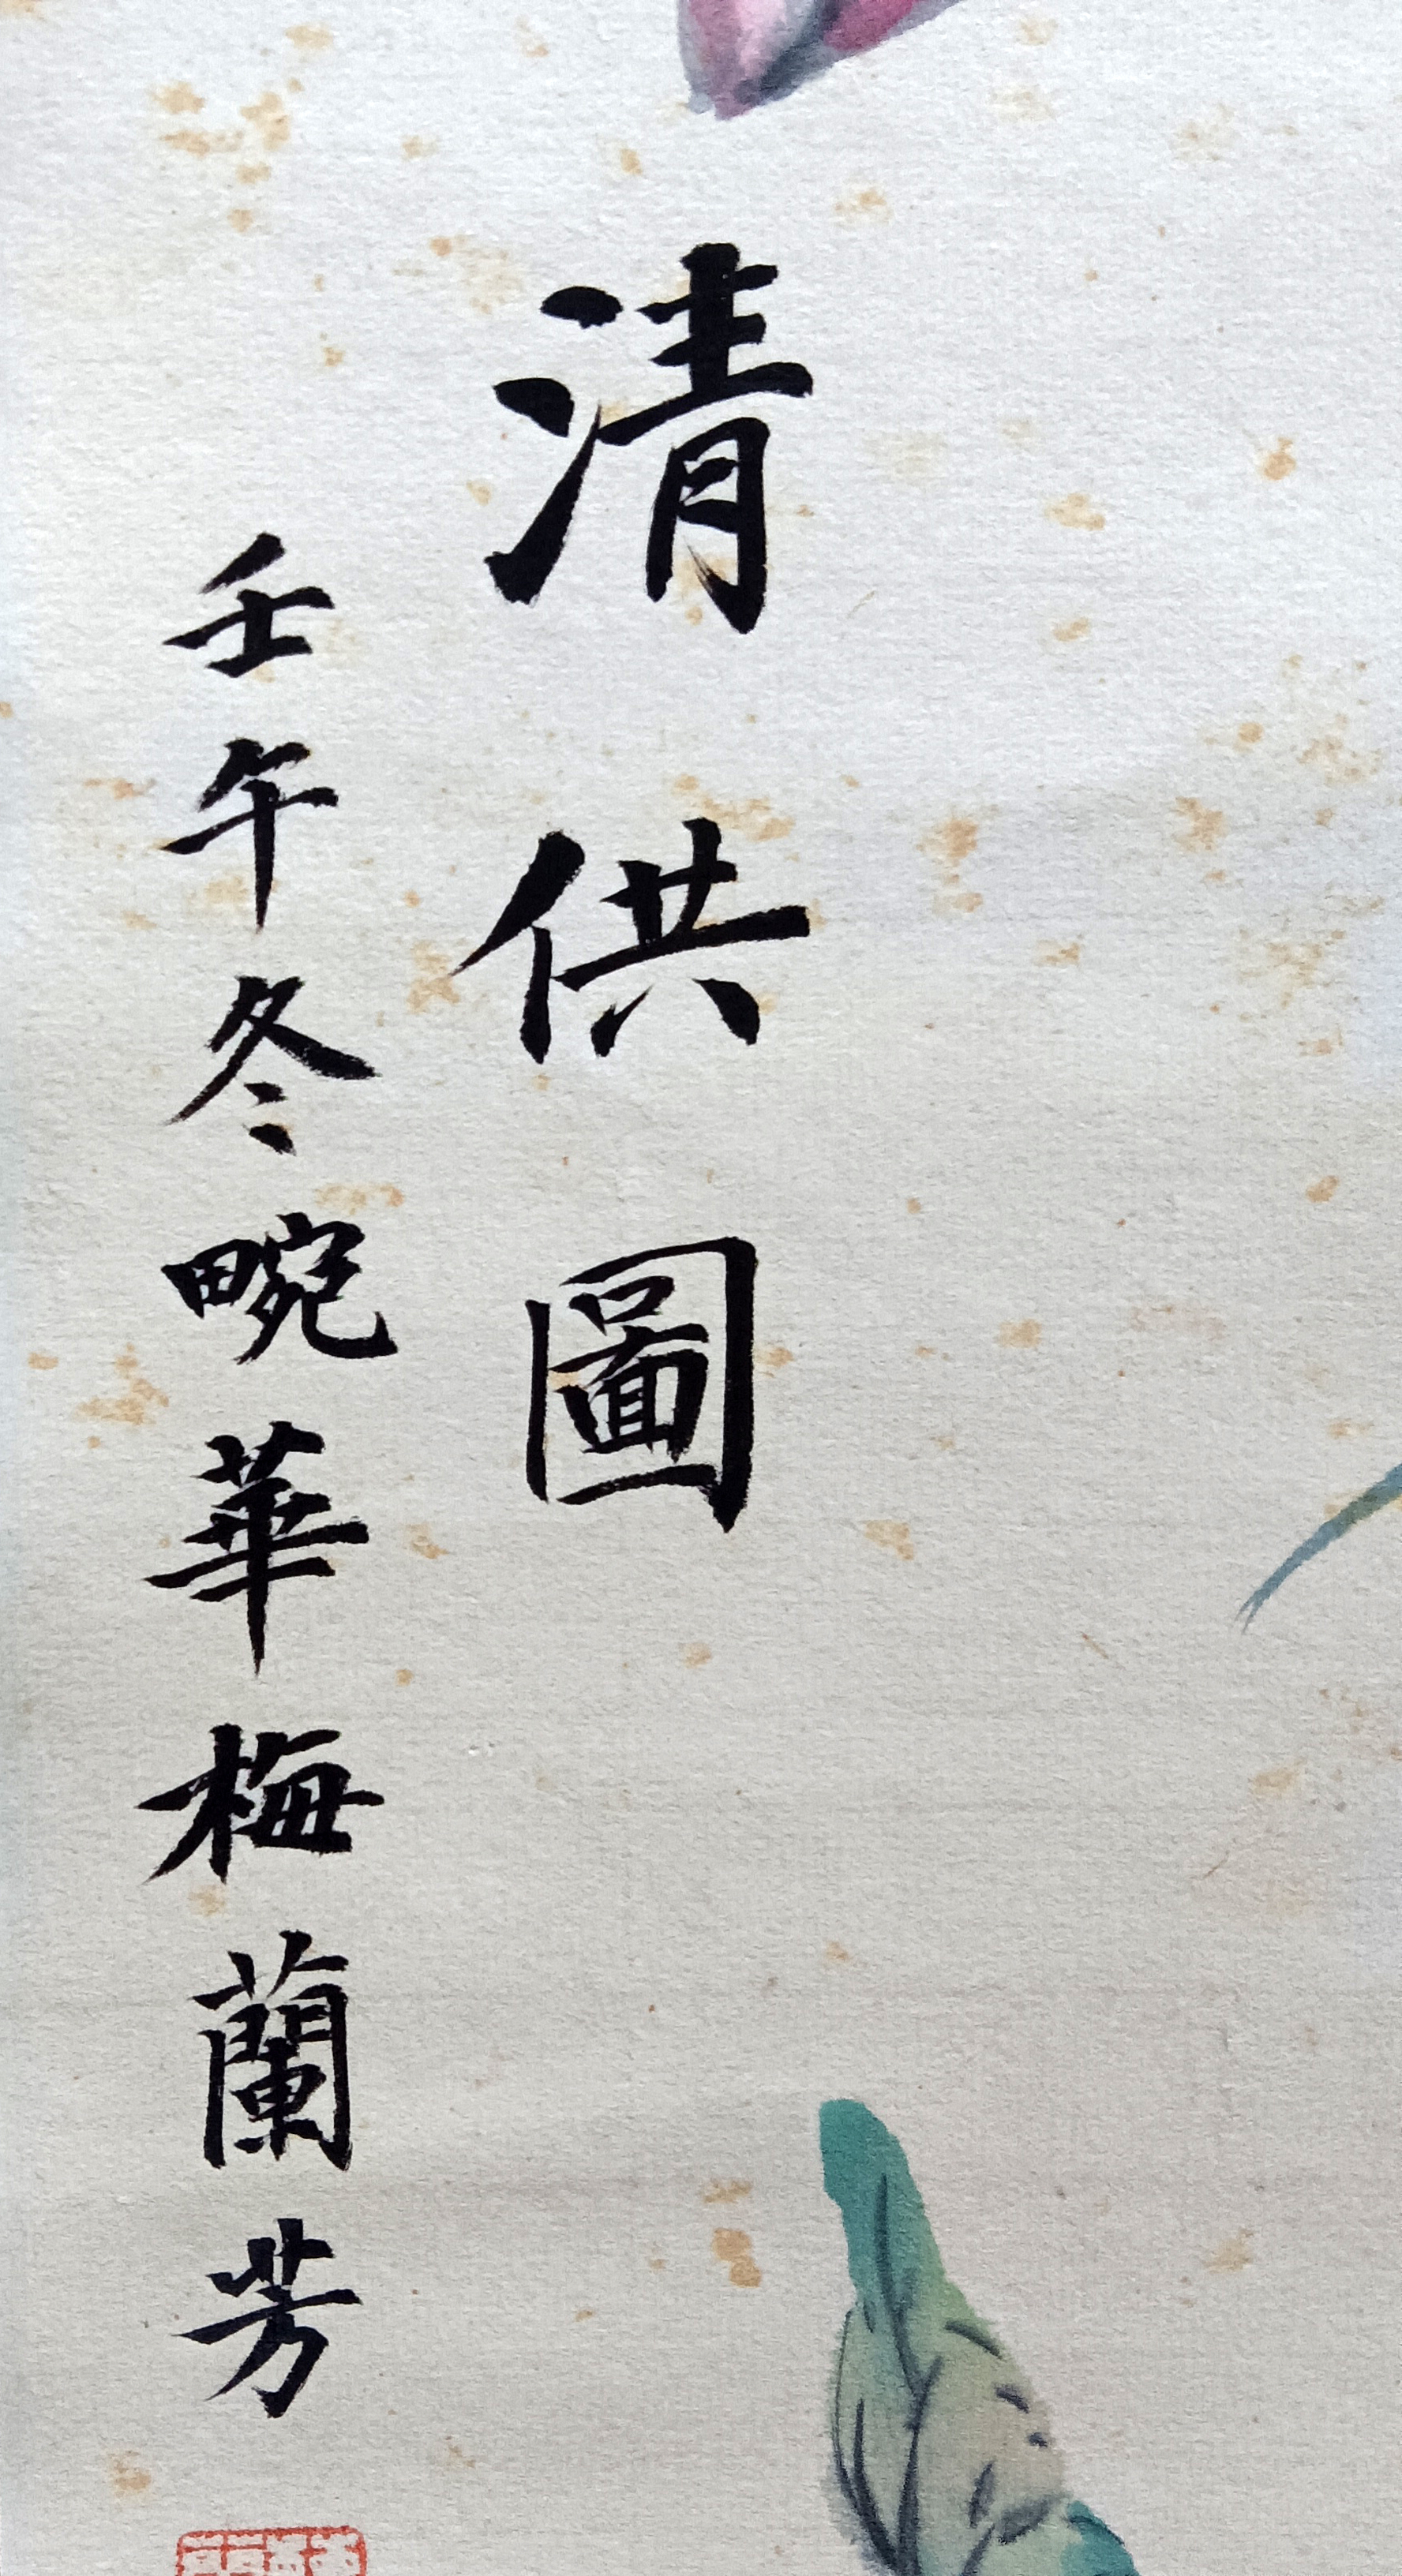 清供圖
壬午冬畹華梅蘭芳